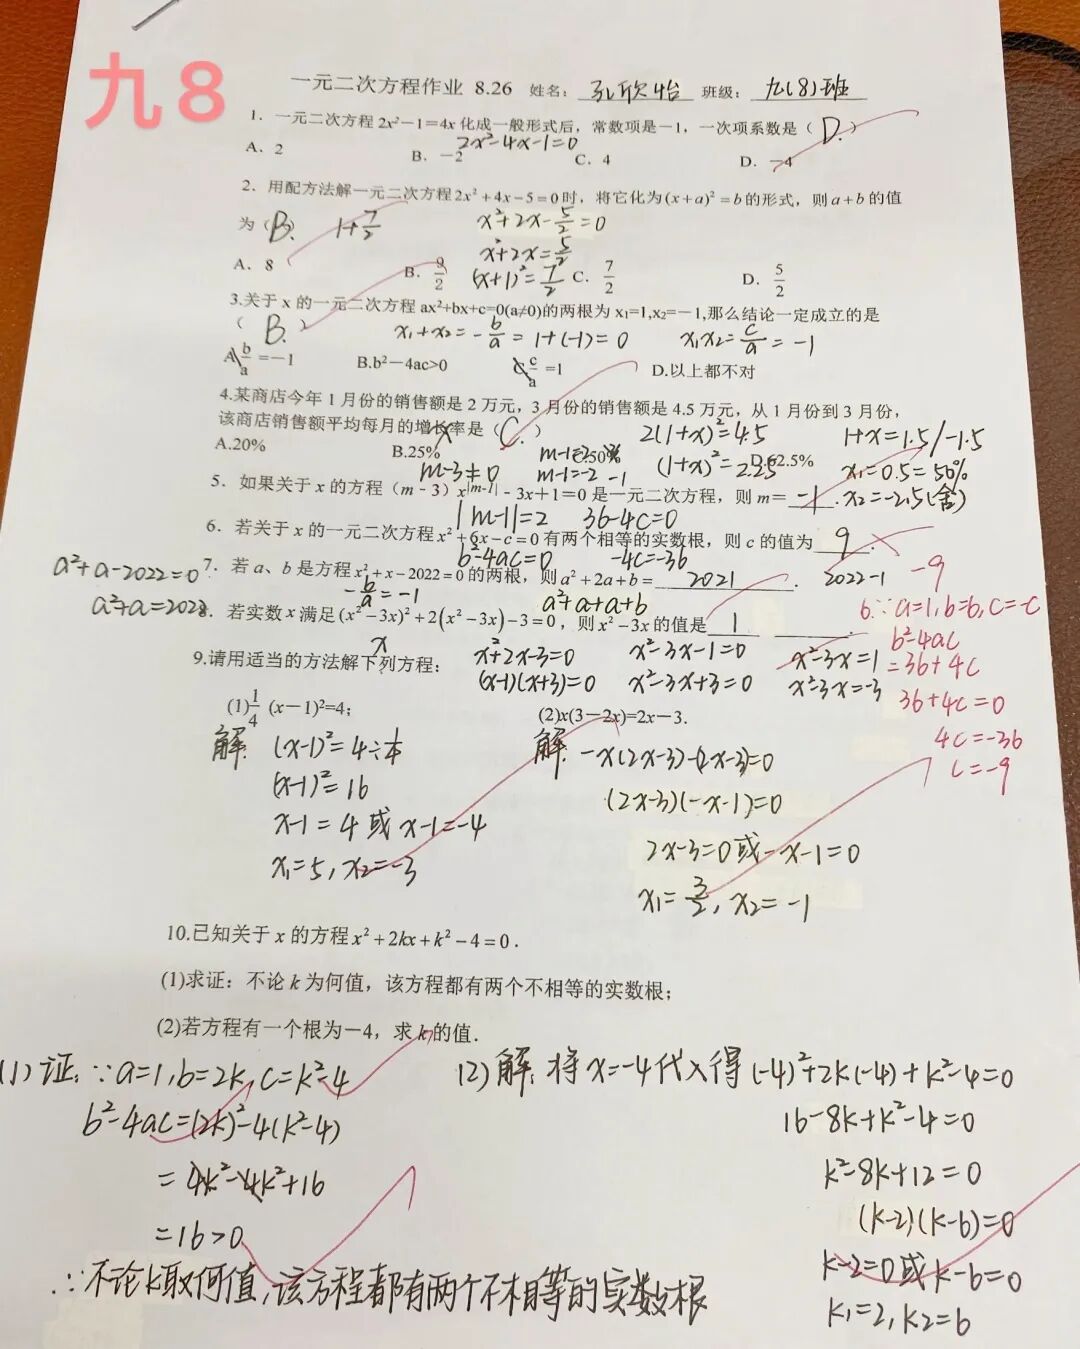 九8
一元二次方程作业 8.26 姓名：孔欣怡 班级：九(8)班
1．一元二次方程 2x²－1＝4x 化成一般形式后，常数项是－1，一次项系数是（ D. ）
2x²-4x-1=0
A．2 B．－2 C．4 D．－4
2．用配方法解一元二次方程 2x²+4x-5=0 时，将它化为 (x+a)²=b 的形式，则 a+b 的值
为（ B. ） 1+7/2 x²+2x-5/2=0
x²+2x=5/2
A．8 B．9/2 (x+1)²=7/2 C．7/2 D．5/2
3.关于 x 的一元二次方程 ax²+bx+c=0(a≠0)的两根为 x₁=1,x₂=－1,那么结论一定成立的是
（ B. ） x₁+x₂=-b/a=1+(-1)=0 x₁x₂=c/a=-1
A.b/a=－1 B.b²－4ac>0 C.c/a=1 D.以上都不对
4.某商店今年 1 月份的销售额是 2 万元，3 月份的销售额是 4.5 万元，从 1 月份到 3 月份，
该商店销售额平均每月的增长率是（ C. ） 2(1+x)²=4.5 1+x=1.5/-1.5
x
A.20% B.25% C.50% D.62.5%
(1+x)²=2.25 x₁=0.5=50%
m-3≠0 m-1=2 m-1=-2 -1
5．如果关于 x 的方程（m﹣3）x^|m-1|﹣3x+1＝0 是一元二次方程，则 m＝ -1 . x₂=-2.5(舍)
|m-1|=2 36-4c=0
6．若关于 x 的一元二次方程 x²+6x-c=0 有两个相等的实数根，则 c 的值为 9 .
-9
b²-4ac=0 -4c=-36
a²+a-2022=0
7．若 a、b 是方程 x²+x-2022=0 的两根，则 a²+2a+b= 2021 . 2022-1
-b/a=-1 a²+a+a+b
a²+a=2022
8．若实数 x 满足 (x²-3x)²+2(x²-3x)-3=0，则 x²-3x 的值是 1 .
x
x²+2x-3=0 x²-3x-1=0 x²-3x=1
(x-1)(x+3)=0 x²-3x+3=0 x²-3x=-3
6.∵a=1,b=6,c=-c
b²-4ac
=36+4c
36+4c=0
4c=-36
c=-9
9.请用适当的方法解下列方程：
(1)1/4 (x－1)²=4; (2)x(3－2x)=2x－3.
解: (x-1)²=4÷1/4
(x-1)²=16
x-1=4 或 x-1=-4
x₁=5, x₂=-3
解: -x(2x-3)-(2x-3)=0
(2x-3)(-x-1)=0
2x-3=0 或 -x-1=0
x₁=3/2, x₂=-1
10.已知关于 x 的方程 x²+2kx+k²-4=0．
(1)求证：不论 k 为何值，该方程都有两个不相等的实数根；
(2)若方程有一个根为－4，求 k 的值．
(1)证:∵a=1,b=2k,c=k²-4
b²-4ac=(2k)²-4(k²-4)
=4k²-4k²+16
=16>0
∴不论k取何值,该方程都有两个不相等的实数根
(2)解:将x=-4代入得(-4)²+2k(-4)+k²-4=0
16-8k+k²-4=0
k²-8k+12=0
(k-2)(k-6)=0
k-2=0或k-6=0
k₁=2,k₂=6